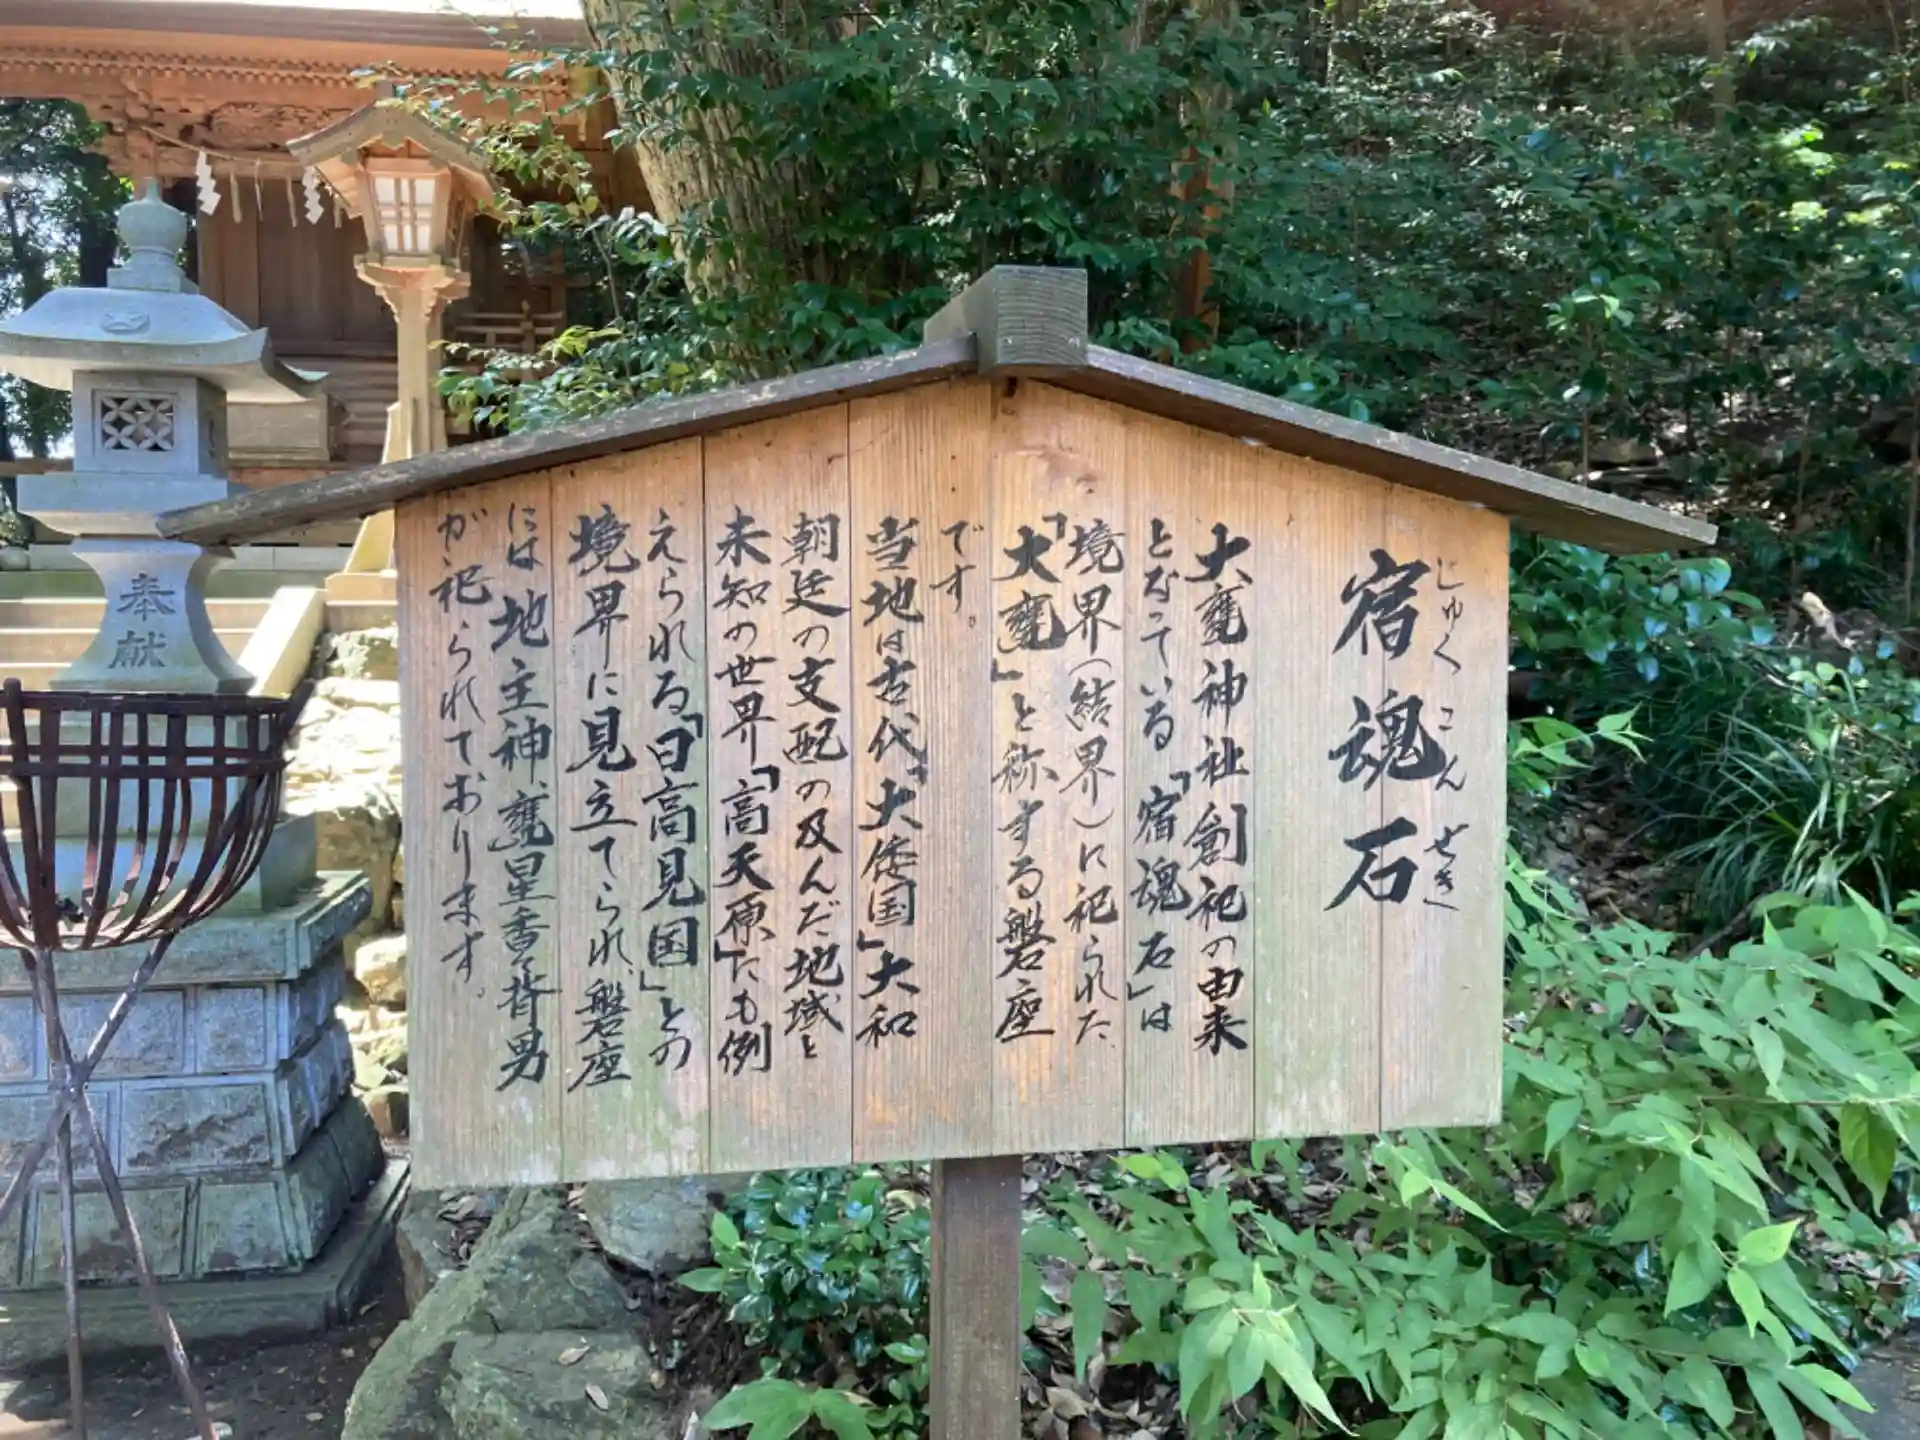 宿魂石
しゅくこんせき
大甕神社創祀の由来
となっている「宿魂石」は
境界(結界)に祀られた
「大甕」と称する磐座
です。
当地は古代「大倭国」大和
朝廷の支配の及んだ地域と
未知の世界「高天原」にも例
えられる「日高見国」との
境界に見立てられ、磐座
には地主神、甕星香々背男
が祀られております。
奉献